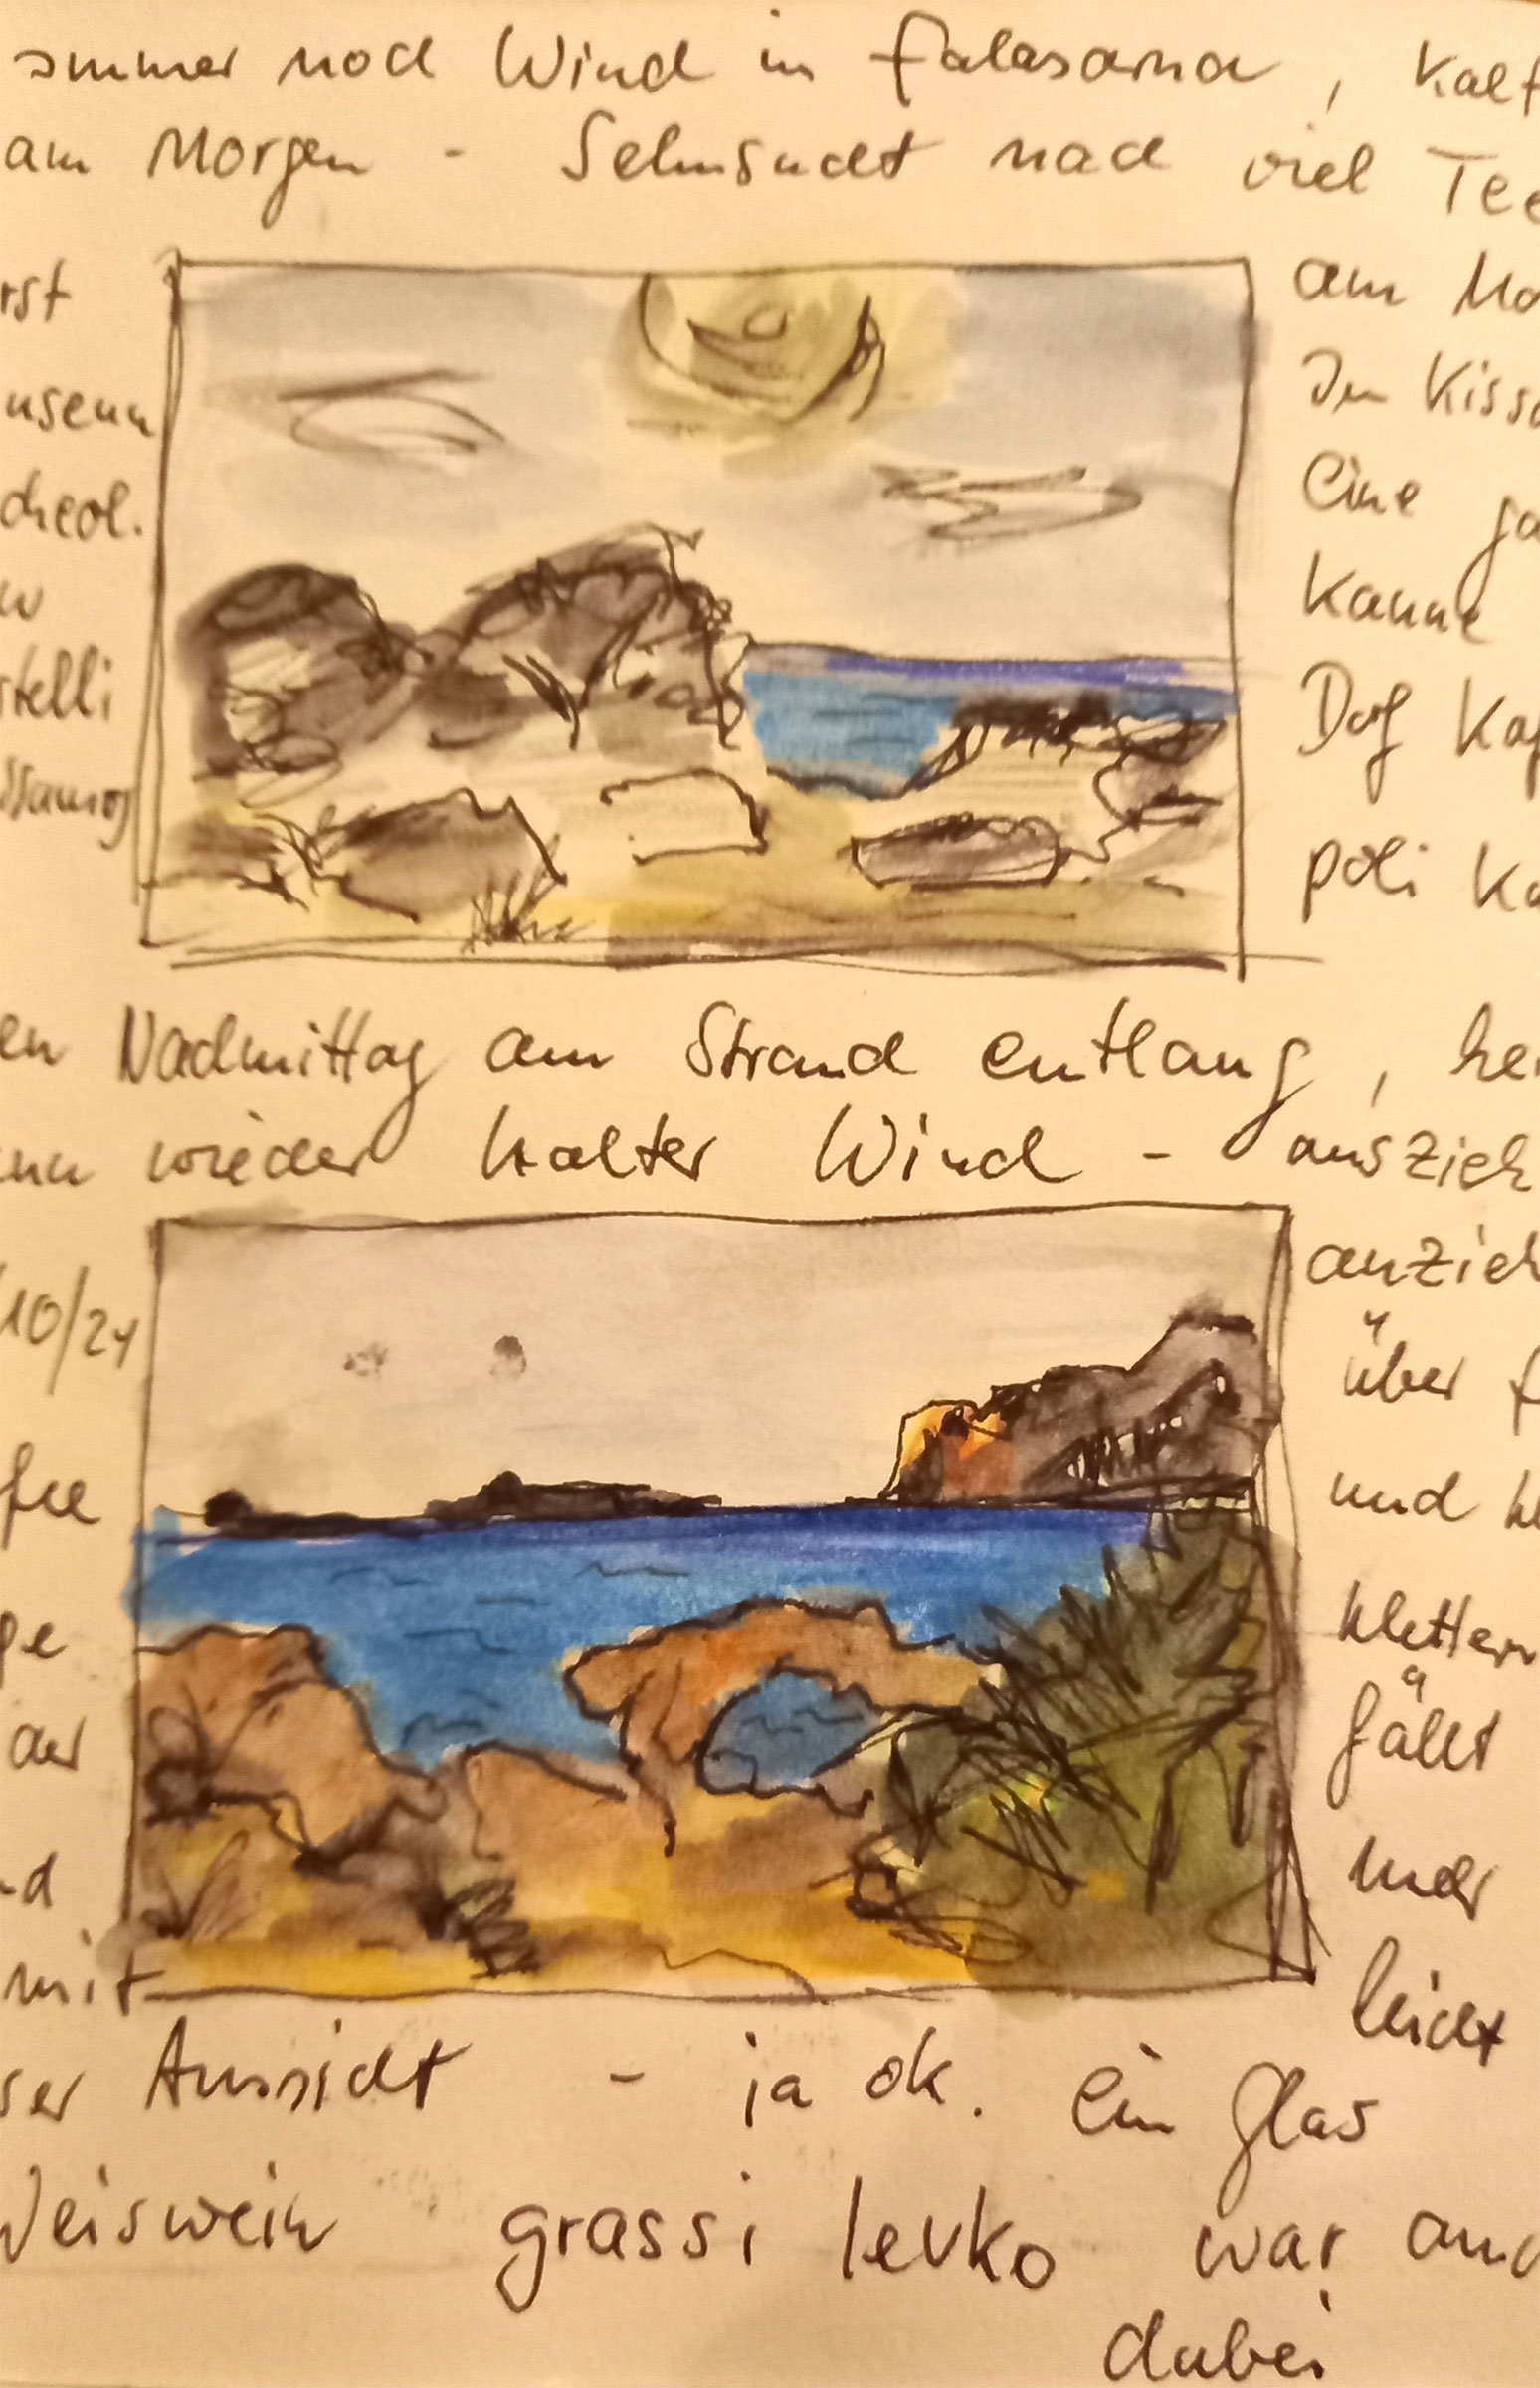 immer noch Wind in Falasarna, kalt
am Morgen - Sehnsucht nach viel Tee
rst
am Mo
useum
In Kissa
cheol.
Eine ga
w
Kanne
stelli
Dog Kaf
issamos
poli Ka
en Nachmittag am Strand entlang, hei
nn wieder kalter Wind - auszieh
anzieh
10/24
über f
fee
und kl
ge
klettern
ar
fällt
nd
mir
mit
leicht
ser Aussicht - ja ok. Ein Glas
Weiswein grassi levko war auc
dabei